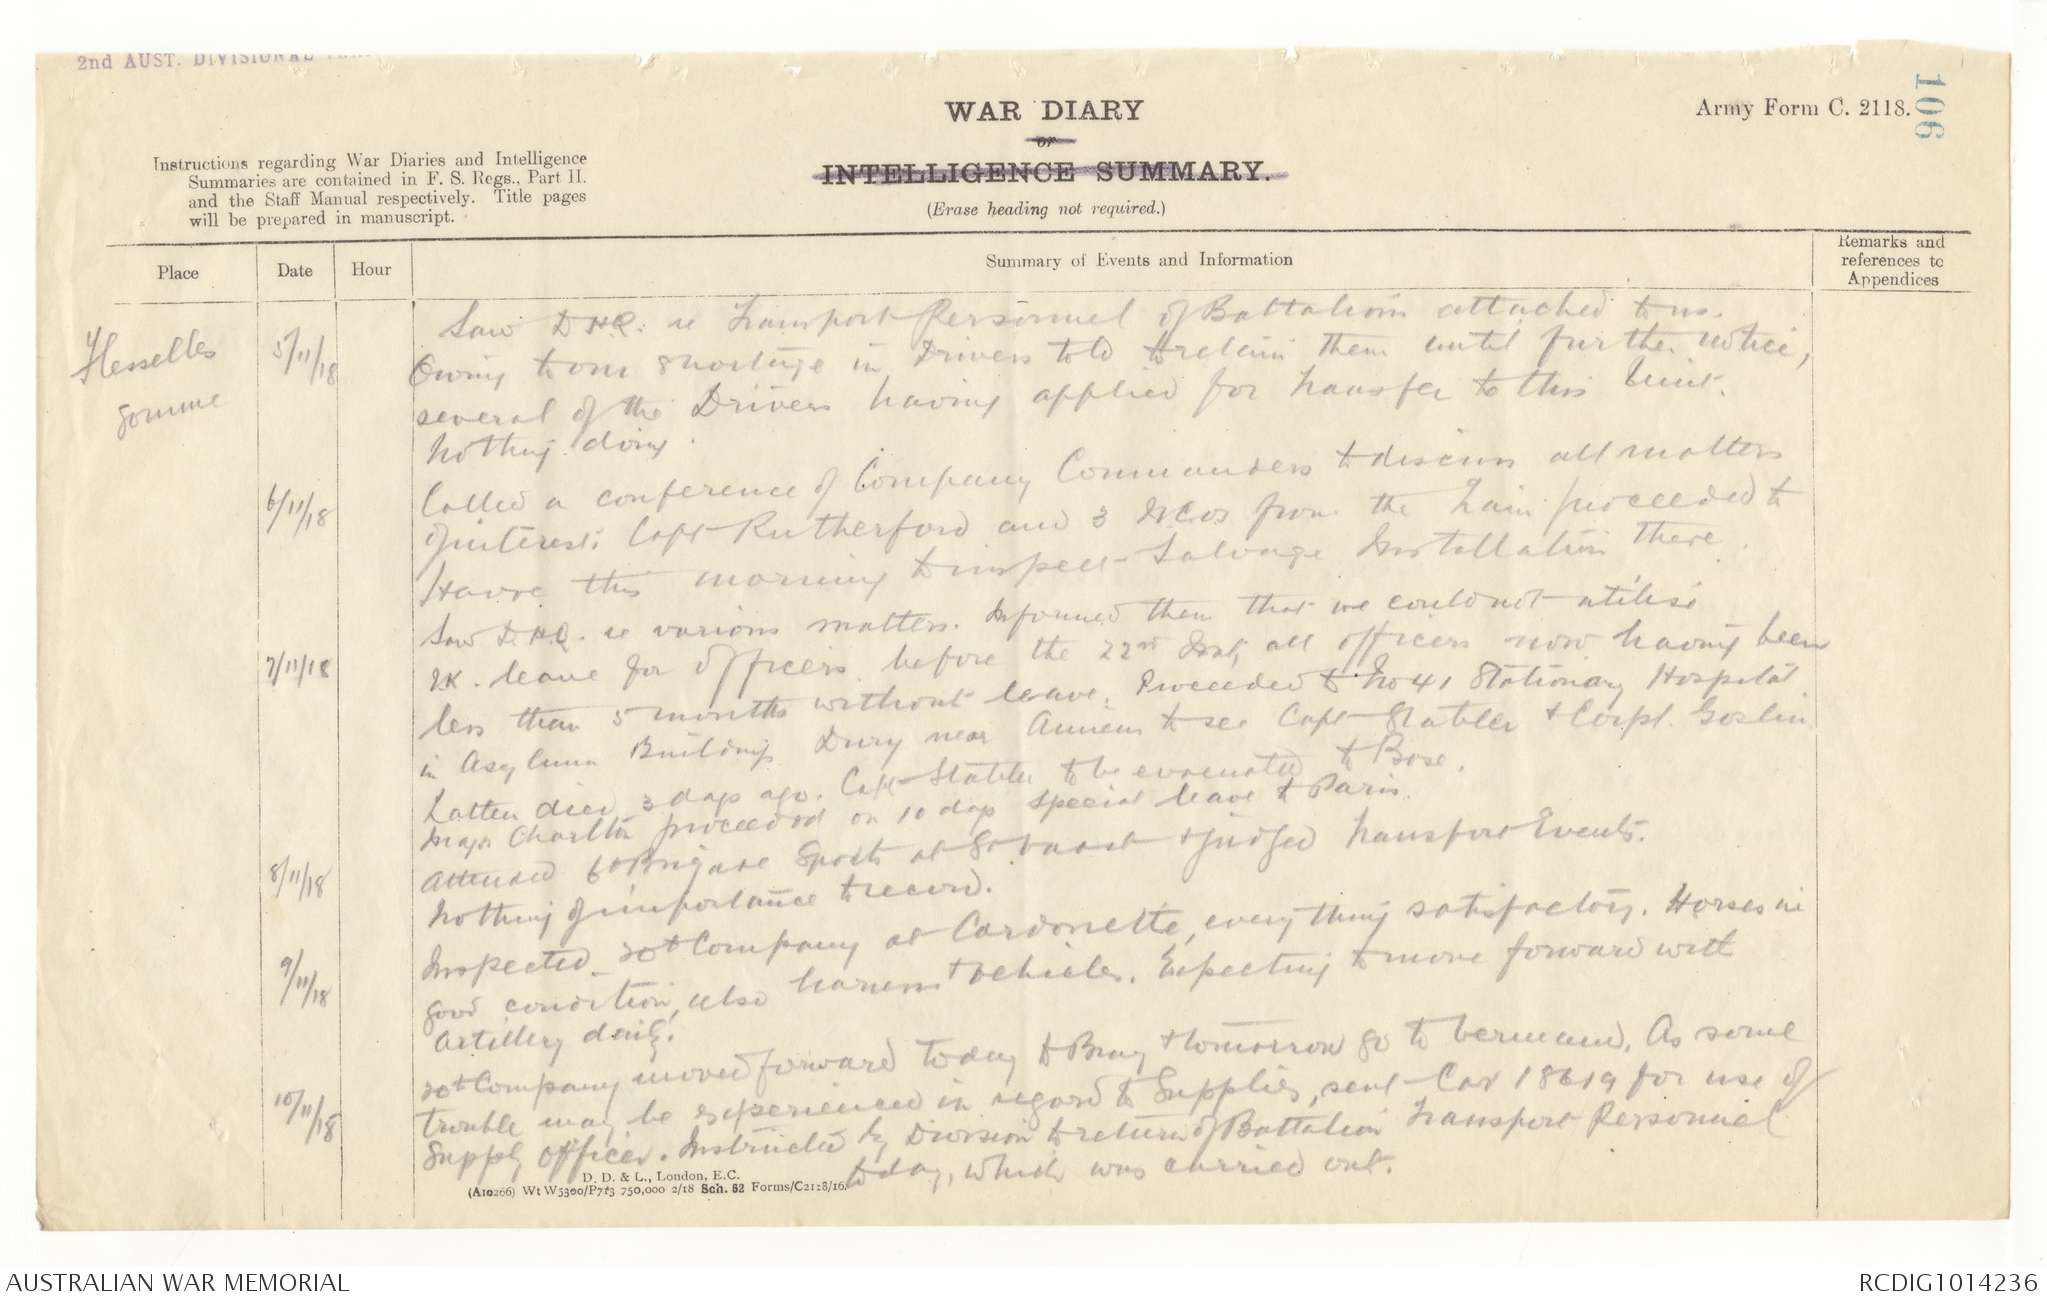 2nd AUST. DIVISIONAL
106
WAR DIARY
or
INTELLIGENCE SUMMARY.
(Erase heading not required.)
Army Form C. 2118.
Instructions regarding War Diaries and Intelligence
Summaries are contained in F. S. Regs., Part II.
and the Staff Manual respectively. Title pages
will be prepared in manuscript.
Place
Date
Hour
Summary of Events and Information
Remarks and
references to
Appendices
Flesselles
Somme
5/11/18
Saw D.H.Q. re Transport Personnel of Battalions attached to us.
Owing to our shortage in Drivers told to retain them until further notice,
several of the Drivers having applied for transfer to this Unit.
Nothing doing.
6/11/18
Called a conference of Company Commanders to discuss all matters
of interest. Capt Rutherford and 3 N.C.Os from the Train proceeded to
Havre this morning to inspect Salvage Installation there.
7/11/18
Saw D.H.Q. re various matters. Informed them that we could not utilise
U.K. leave for Officers before the 22nd Inst, all officers now having been
less than 5 months without leave. Proceeded to No 41 Stationary Hospital
in Asylum Buildings Dury near Amiens to see Capt Stabler & Corpl. Goslin
Latter died 3 days ago. Capt Stabler to be evacuated to Base.
Major Charlton proceeded on 10 days special leave to Paris.
8/11/18
Attended 6th Brigade Sports at St Vaast & judged Transport Events.
Nothing of importance to record.
9/11/18
Inspected 20th Company at Cardonette, everything satisfactory. Horses in
good condition, also harness & vehicles. Expecting to move forward with
Artillery daily.
10/11/18
20th Company moved forward today to Bray & tomorrow go to Vermand. As some
trouble may be experienced in regard to Supplies, sent Car 18619 for use of
Supply Officer. Instructed by Division to return of Battalion Transport Personnel
today, which was carried out.
D. D. & L., London, E.C.
(A10266) Wt W5300/P713 750,000 2/18 Sch. 52 Forms/C2118/16.
AUSTRALIAN WAR MEMORIAL
RCDIG1014236